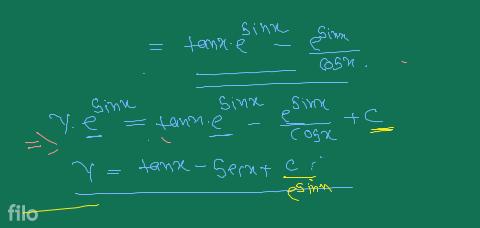 = tanx·e^sinx − e^sinx/cosx.
⇒ y·e^sinx = tanx·e^sinx − e^sinx/cosx + C
y = tanx − secx + C/e^sinx
filo